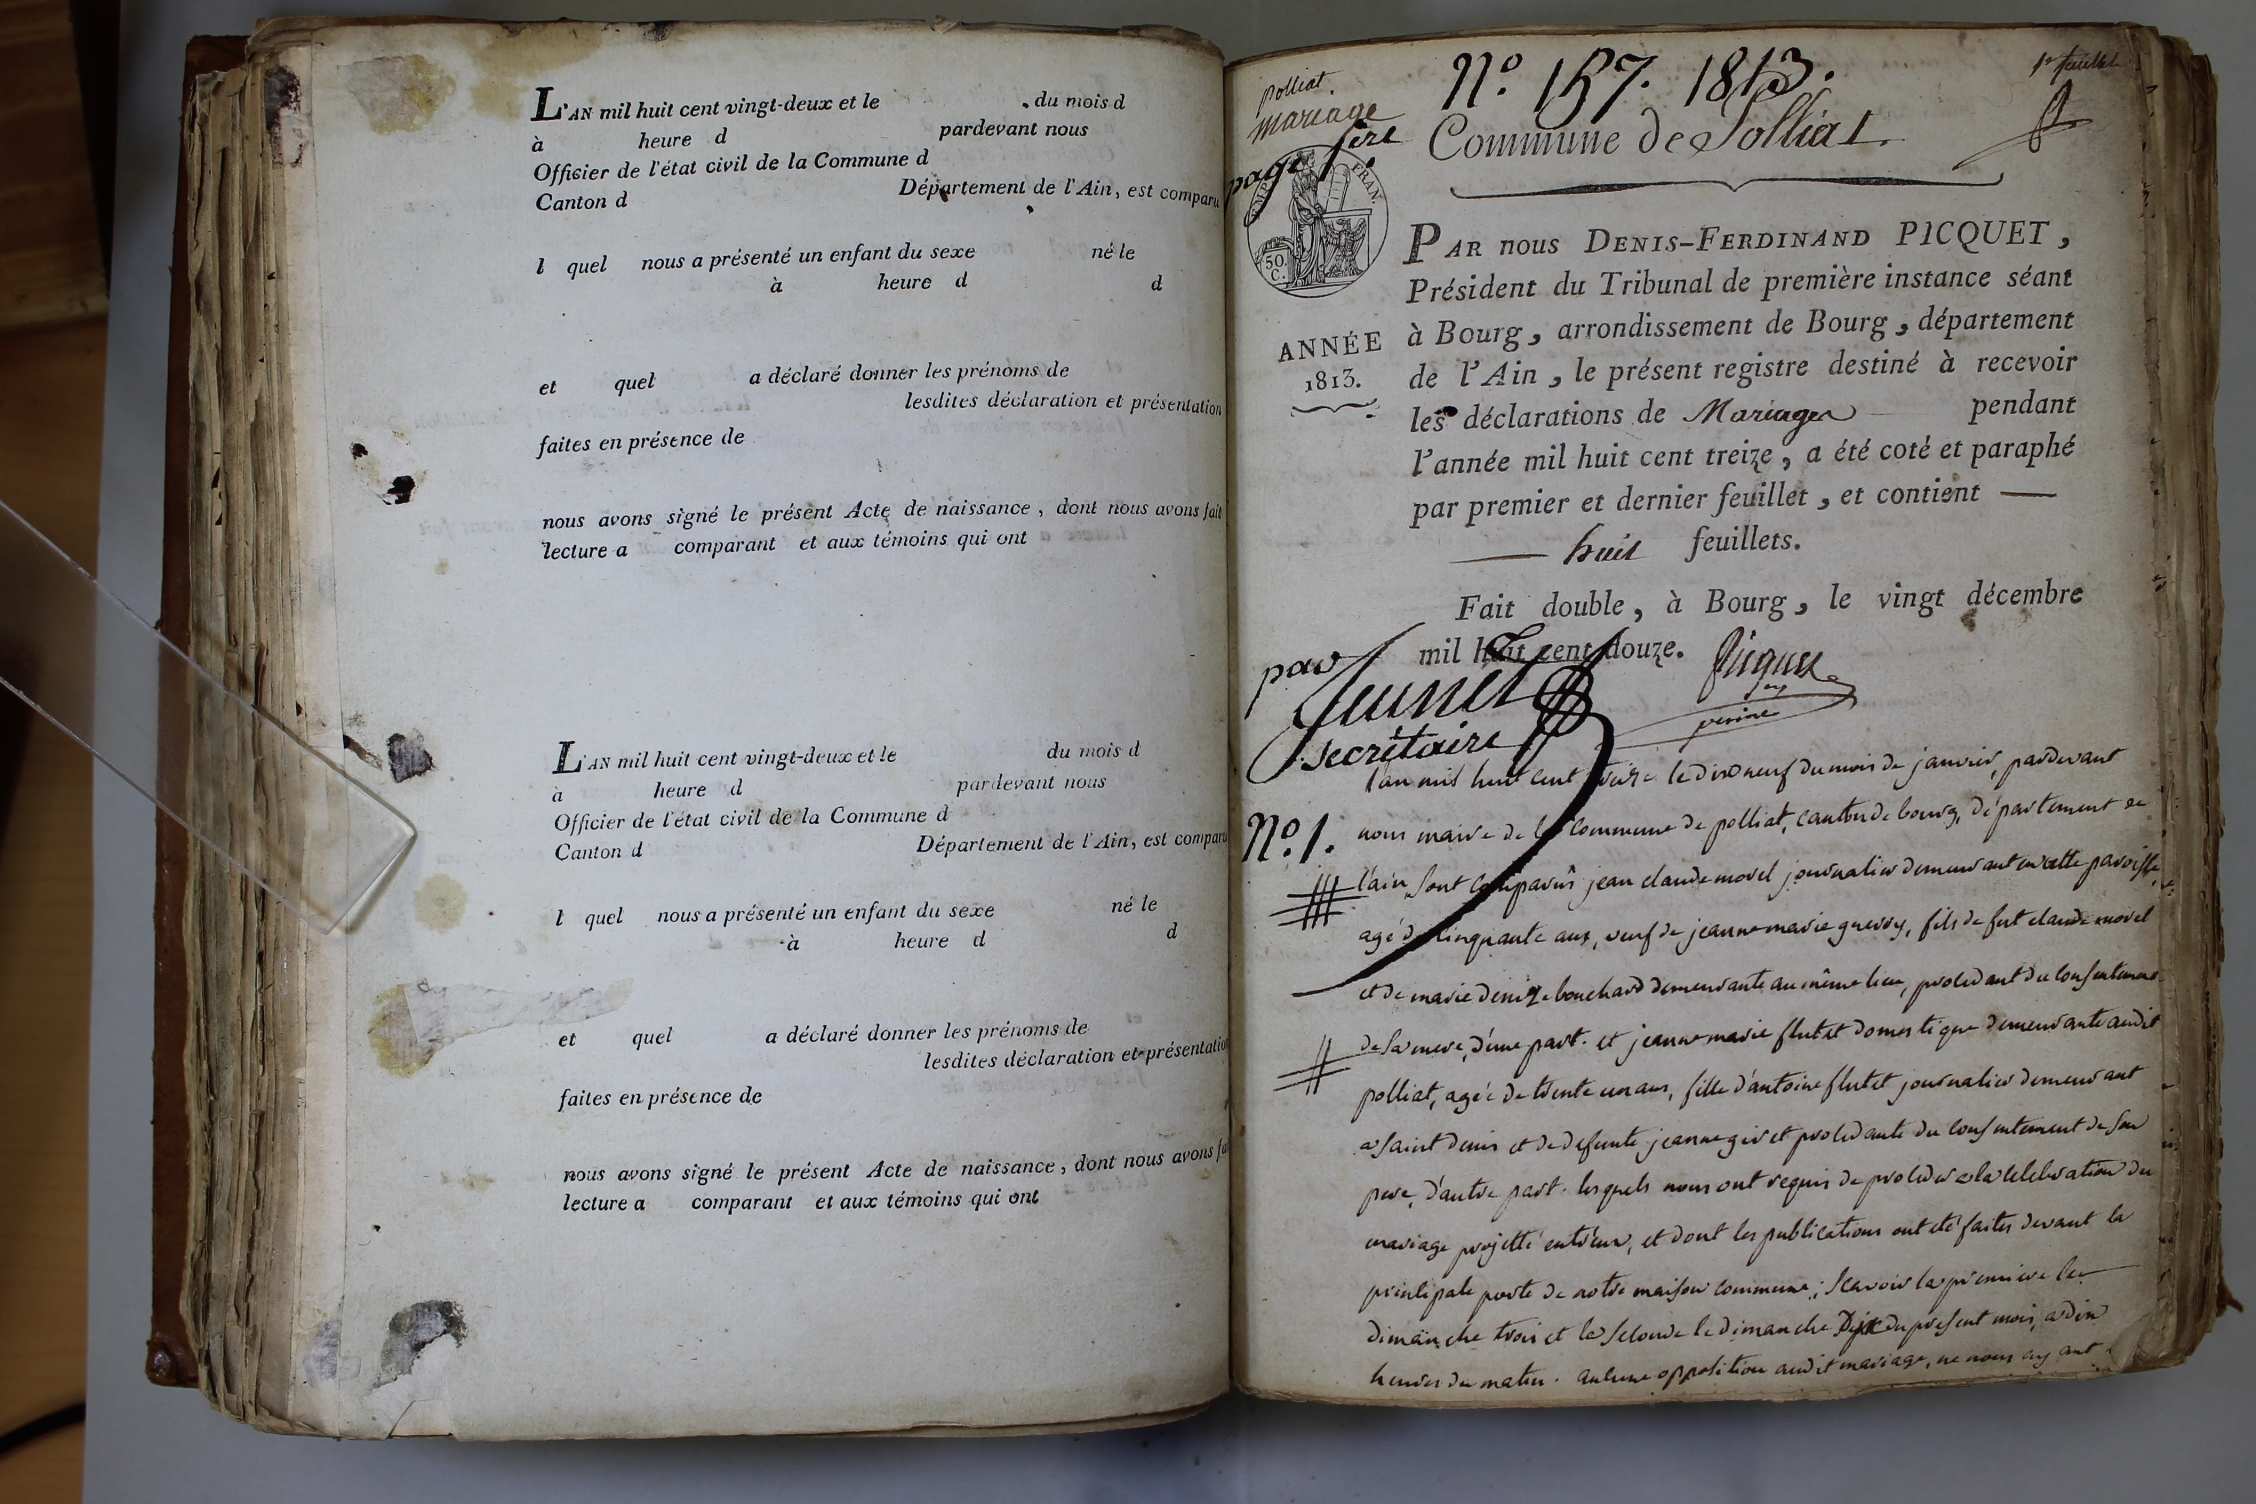 L'AN mil huit cent vingt-deux et le du mois d
à heure d pardevant nous
Officier de l'état civil de la Commune d
Canton d Département de l'Ain, est comparu
l quel nous a présenté un enfant du sexe né le
à heure d d
et quel a déclaré donner les prénoms de
lesdites déclaration et présentation
faites en présence de
nous avons signé le présent Acte de naissance, dont nous avons fait
lecture a comparant et aux témoins qui ont
L'AN mil huit cent vingt-deux et le du mois d
à heure d pardevant nous
Officier de l'état civil de la Commune d
Canton d Département de l'Ain, est comparu
l quel nous a présenté un enfant du sexe né le
à heure d d
et quel a déclaré donner les prénoms de
lesdites déclaration et présentation
faites en présence de
nous avons signé le présent Acte de naissance, dont nous avons fa
lecture a comparant et aux témoins qui ont
polliat.
mariage
page 1ere
No. 157. 1813.
1er feuillet
Commune de Polliat.
FRAN.
50.
C.
ANNÉE
1813.
PAR nous DENIS-FERDINAND PICQUET,
Président du Tribunal de première instance séant
à Bourg, arrondissement de Bourg, département
de l'Ain, le présent registre destiné à recevoir
les déclarations de Mariages pendant
l'année mil huit cent treize, a été coté et paraphé
par premier et dernier feuillet, et contient —
— huit feuillets.
Fait double, à Bourg, le vingt décembre
mil huit cent douze.
Picquet
par
secrétaire
No. 1.
l'an mil huit cent treize le dix neuf du mois de janvier, pardevant
nous maire de la commune de polliat, canton de bourg, département de
l'ain sont comparûs jean claude morel journalier demeurant en cette paroisse,
agé de cinquante ans, veuf de jeanne marie guerry, fils de fut claude morel
et de marie denize bouchard demeurante au même lieu, procedant du consentement
de sa mere, d'une part. et jeanne marie flutet domestique demeurante audit
polliat, agée de trente un ans, fille d'antoine flutet journalier demeurant
a saint denis et de defunte jeanne giret procedante du consentement de son
pere, d'autre part. lesquels nous ont requis de proceder a la celebration du
mariage projetté entr'eux, et dont les publications ont été faites devant la
principale porte de notre maison commune; scavoir la premiere le
dimanche trois et la seconde le dimanche dix du present mois, a dix
heures du matin. aucune opposition audit mariage, ne nous ayant